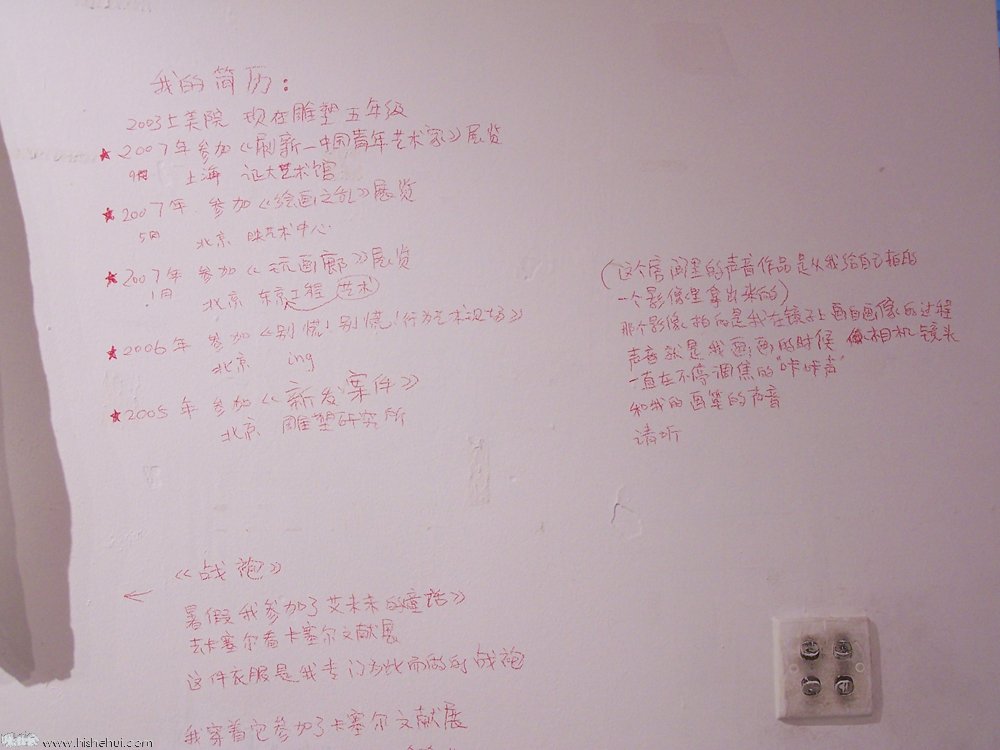 我的简历：
2003上美院 现在雕塑五年级
★2007年 参加《刷新—中国青年艺术家》展览
9月 上海 证大艺术馆
★2007年 参加《绘画之乱》展览
5月 北京 映艺术中心
★2007年 参加《玩画廊》展览
1月 北京 东京工程 艺术
★2006年 参加《别慌！别慌！行为艺术现场》
北京 ing
★2005年 参加《新发案件》
北京 雕塑研究所
（这个房间里的声音作品是从我给自己拍的
一个影像里拿出来的）
那个影像拍的是我在镜子上画自画像的过程
声音就是我画画的时候 相机镜头
一直在不停调焦的"咔咔声"
和我的画笔的声音
请听
《战袍》
←
暑假我参加了艾未未的童话》
去卡塞尔看卡塞尔文献展
这件衣服是我专门为此而做的战袍
我穿着它参加了卡塞尔文献展
www.hishehui.com